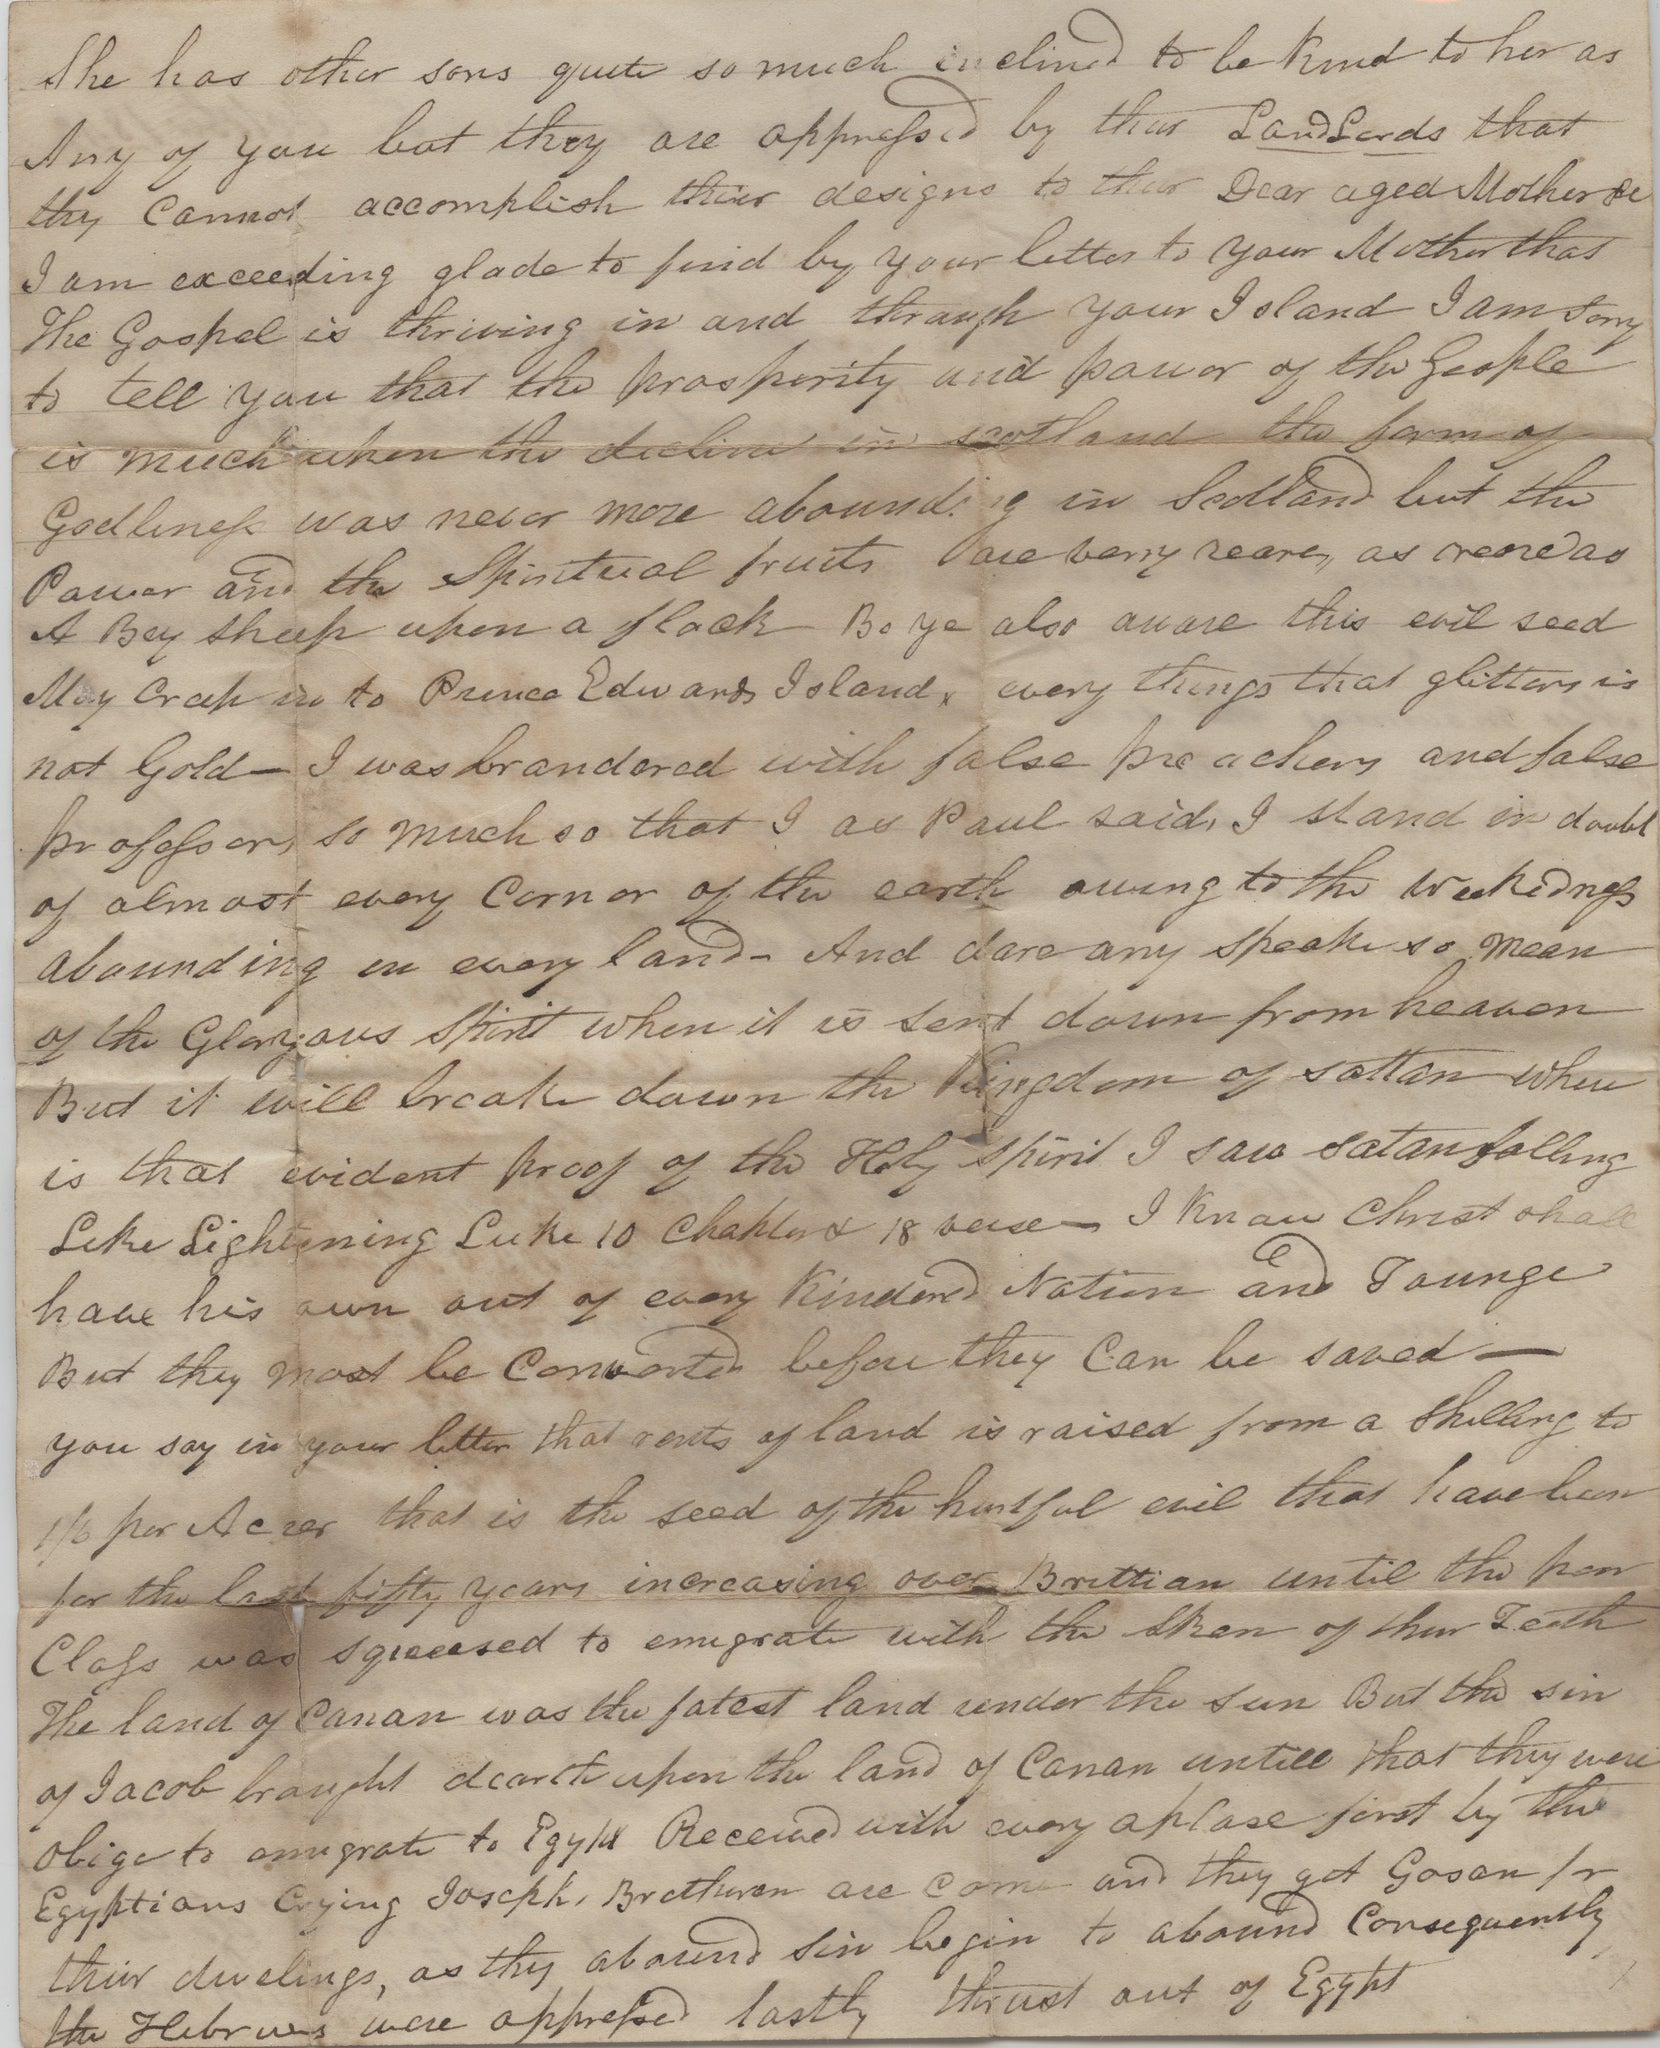 She has other sons quite so much inclined to be Kind to her as
Any of you but they are oppressed by thier LandLords that
thy Cannot accomplish thier designs to thier Dear aged Mother &c
I am exceeding glade to find by your letter to your Mother that
The Gospel is thriving in and through your Island I am Sorry
to tell you that the prosperity and power of the Gosple
is much upon the decline in scotland the form of
Godliness was never more abounding in Scotland but the
Power and the Spiritual fruits are verry reare, as reare as
A Bey sheep upon a flock Be ye also aware this evil seed
May Creep in to Prince Edwards Island, every things that glitters is
not Gold — I was brandered with false preachers and false
professors, so much so that I as Paul said, I stand in doubt
of almost every Corner of the earth owing to the Wickedness
abounding in every land — And dare any speake so mean
of the Gloryous Spirit when it is sent down from heaven
But it will breake down the Kingdom of sattan when
is that evident proof of the Holy Spirit I saw satan falling
Like Lightening Luke 10 Chapter & 18 verse — I Know Christ shall
have his own out of every Kindered Nation and Tounge
But they most be Converted before they Can be saved —
you say in your letter that rents of land is raised from a Shilling to
1/6 per Acrer that is the seed of the hurtful evil that have been
for the last fifty years increasing over Brittian until the poor
Class was sqeeesed to emigrate with the Sken of thier Teeth
The land of Canan was the fatest land under the sun But the sin
of Jacob braught dearth upon the land of Canan untill that they were
obige to emigrate to Egypt Received with every aplase first by the
Egyptians Crying Joseph, Bretheren are Come and they got Gosen for
thier dwelings, as they abound sin begin to abound Consequently
the Hebrews were oppressed lastly thrust out of Egypt